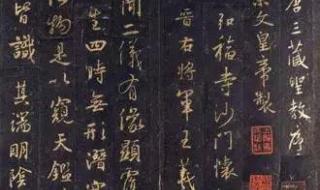 唐三藏聖教序
宗文皇帝製
弘福寺沙門懷
晉右將軍王羲
聞二儀有像顯覆
生四時無形潛寒
物是以窺天鑑
皆識其端明陰